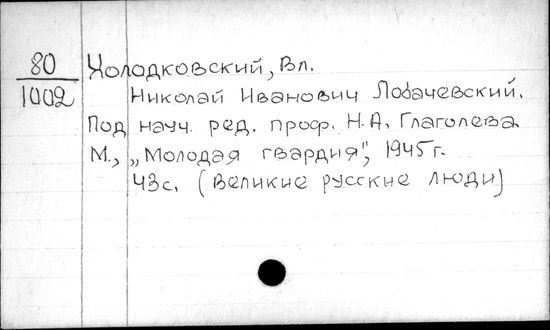 80
1002
Холодковский, Вл.
Николай Иванович Лобачевский.
Под науч. ред. проф. Н.А. Глаголева
М., „Молодая гвардия", 1945г.
43с. (Великие русские люди)